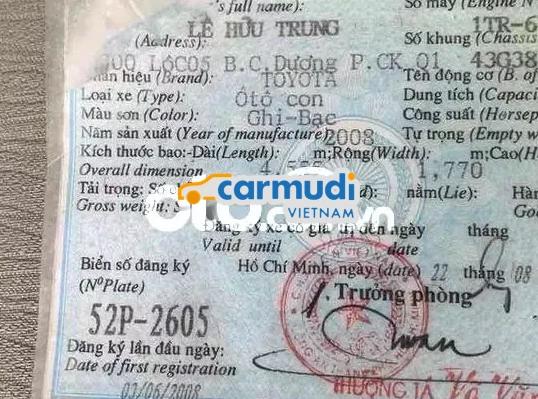 's full name): Số máy (Engine N
LÊ HỮU TRUNG 1TR-6
(Address): Số khung (Chassis
300 LôC05 B.C.Dương P.CK Q1 43G38
Nhãn hiệu (Brand): TOYOTA Tên động cơ (B. of
Loại xe (Type): Ôtô con Dung tích (Capaci
Màu sơn (Color): Ghi-Bạc Công suất (Horsep
Năm sản xuất (Year of manufacture) 2008 Tự trọng (Empty w
Kích thước bao:-Dài(Length): m;Rộng(Width): m;Cao(H
Overall dimension 1,770
Tải trọng: nằm(Lie): Hàn
Gross weight: Go
carmudi
VIETNAM
Đăng ký xe có giá trị đến ngày tháng
Valid until date
Biển số đăng ký Hồ Chí Minh, ngày (date) 22 tháng 08
(NºPlate) Trưởng phòng
52P-2605
Đăng ký lần đầu ngày:
Date of first registration
03/06/2008 THƯỢNG TÁ Võ Vă